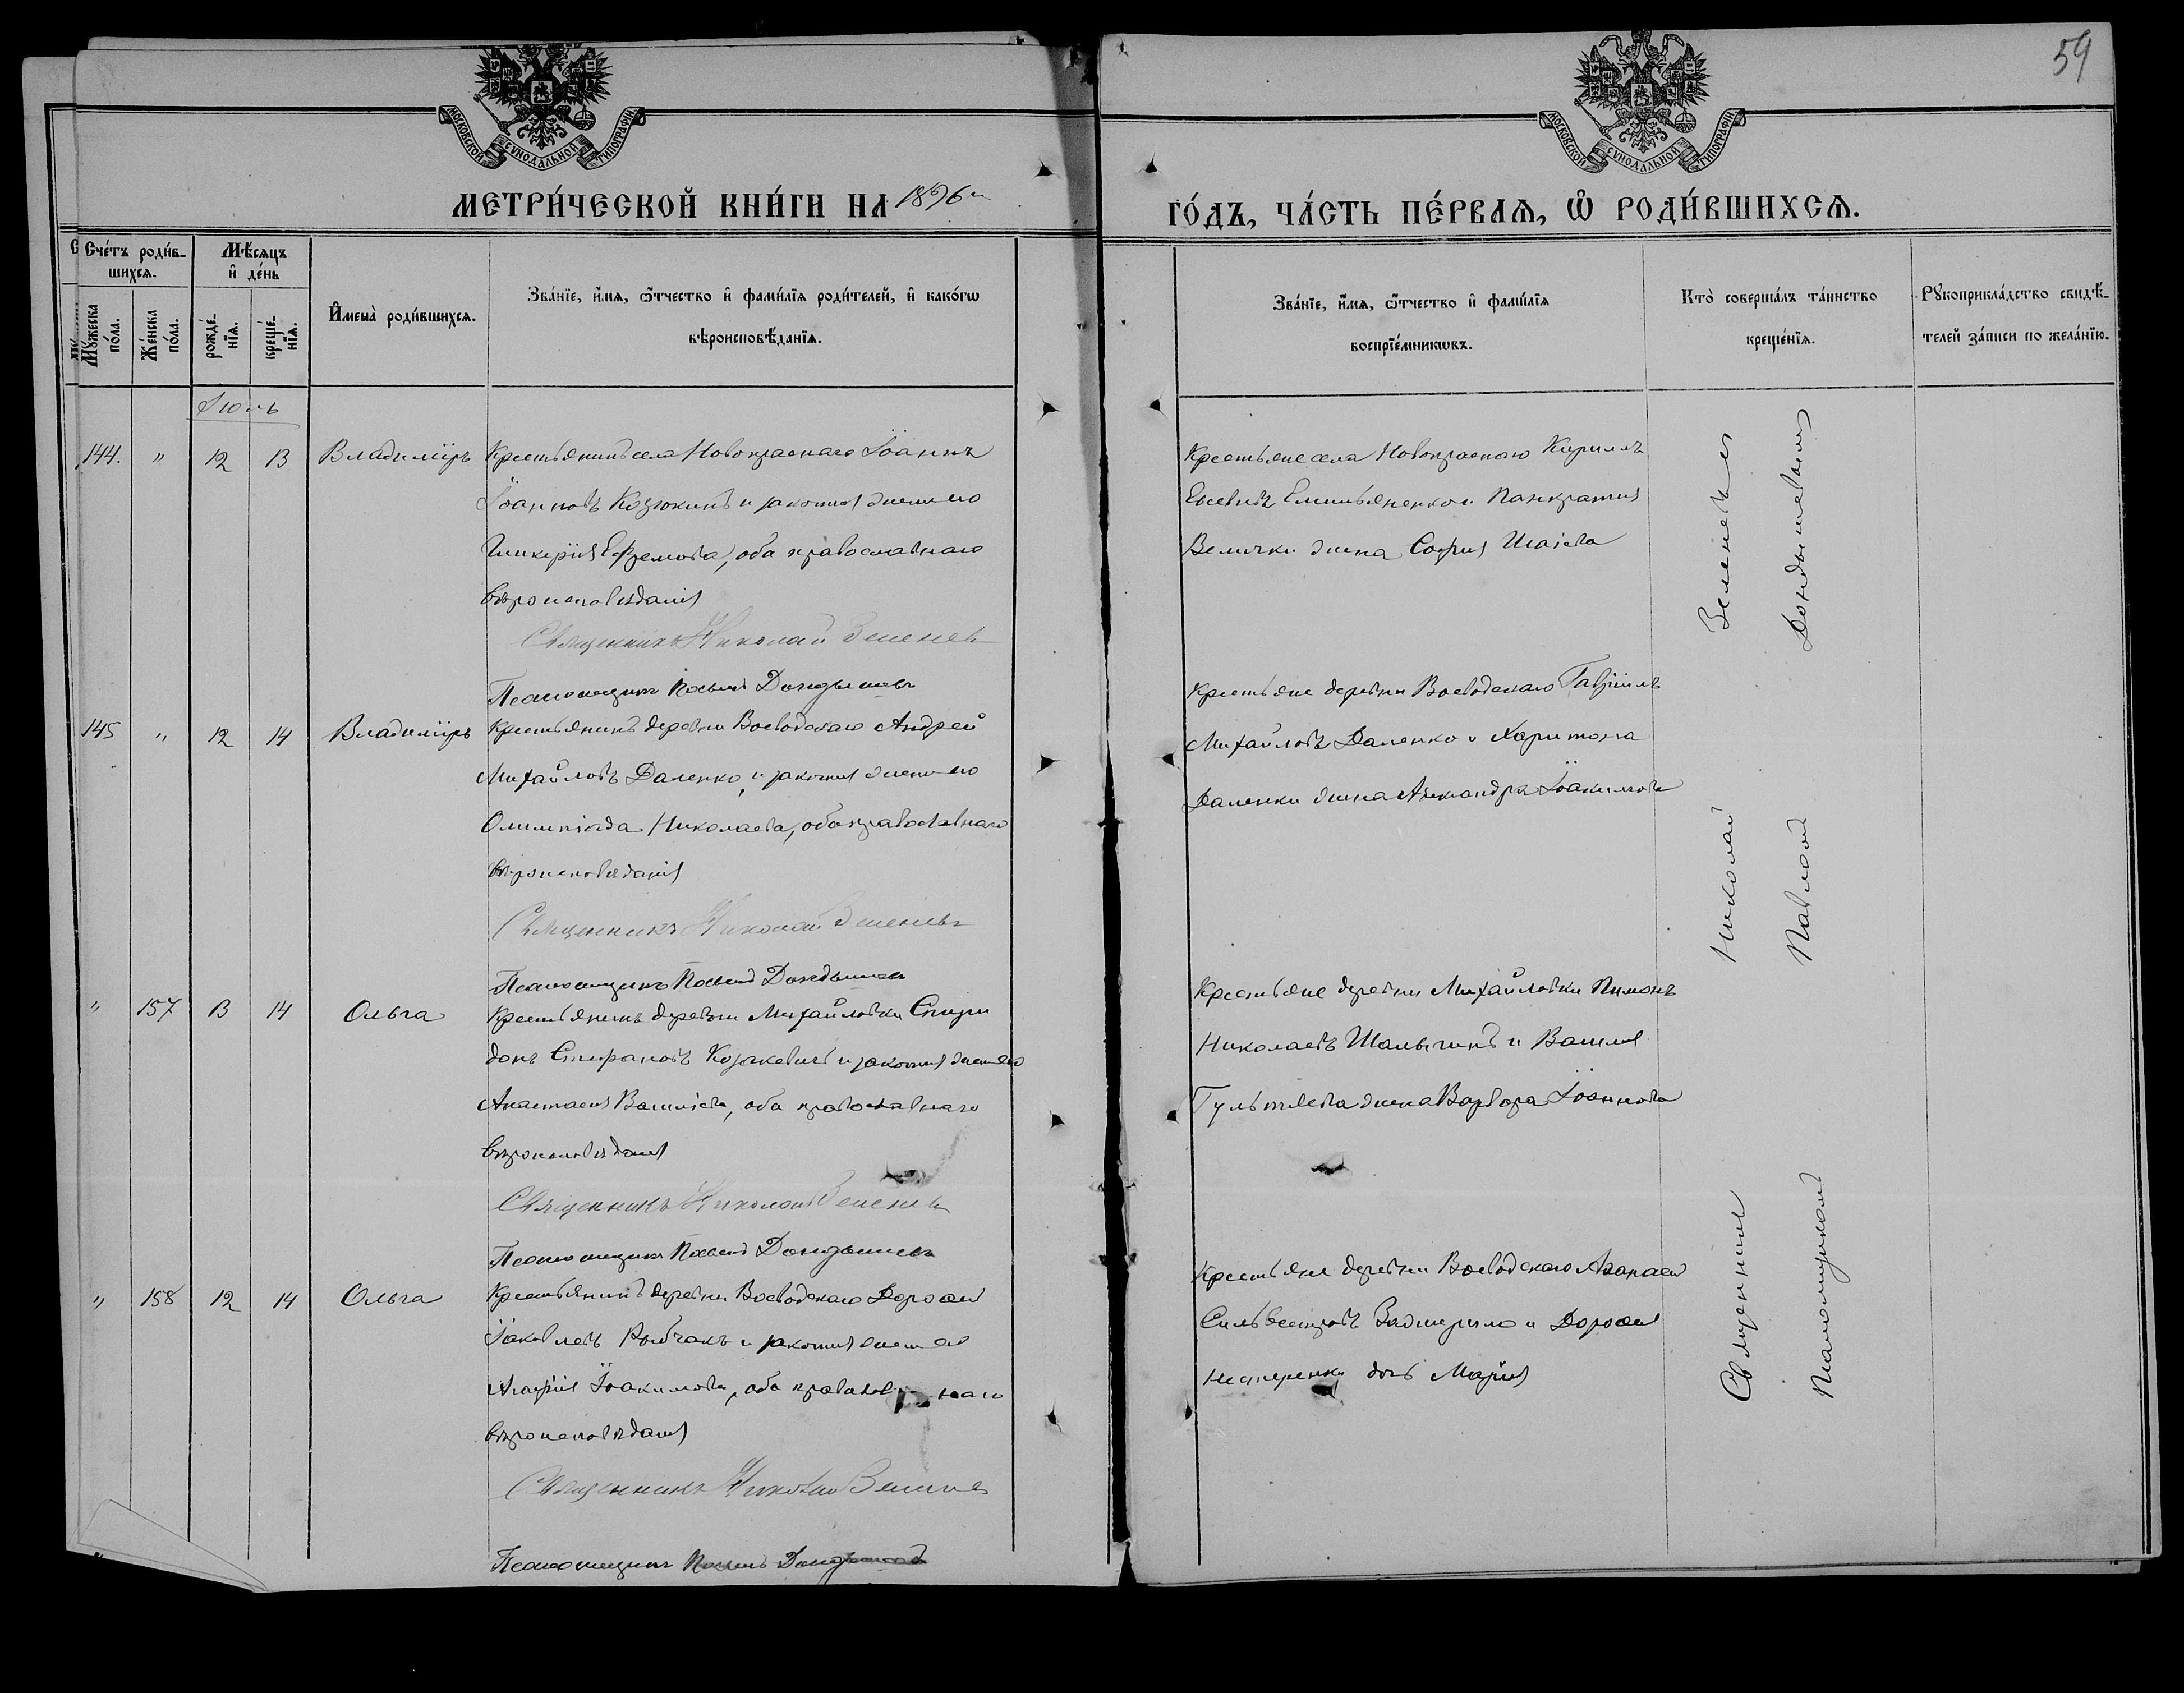 59
МОСКОВСКОЙ СѴНОДАЛЬНОЙ ТИПОГРАФІИ
МОСКОВСКОЙ СѴНОДАЛЬНОЙ ТИПОГРАФІИ
МЕТРИ́ЧЕСКОЙ КНИ́ГИ НА 1896 ГО́ДЪ, ЧА́СТЬ ПЕ́РВАѦ, Ѡ҆ РОДИ́ВШИХСѦ.
Сче́тъ роди́в-
шихсѧ.
Мꙋ́жеска по́ла.
Же́нска по́ла.
Мѣ́сѧцъ и҆ де́нь
рожде́-нїѧ.
креще́-нїѧ.
И҆мена̀ роди́вшихсѧ.
Зва́нїе, и҆́мѧ, ѻ҆́тчество и҆ фами́лїѧ роди́телей, и҆ како́гѡ
вѣроисповѣ́данїѧ.
Зва́нїе, и҆́мѧ, ѻ҆́тчество и҆ фами́лїѧ
воспрїе́мникѡвъ.
Кто̀ соверша́лъ та́инство
креще́нїѧ.
Рꙋкоприкла́дство свидѣ́-
телей за́писи по жела́нїю.
Іюль
144. " 12 13 Владиміръ
Крестьянинъ села Новокраснаго Іоаннъ
Іоанновъ Козюкинъ и законная жена его
Гликерія Ефремова, оба православнаго
вѣроисповѣданія
Священникъ Николай Зеленевъ
Псаломщикъ Павелъ Дондышевъ
Крестьяне села Новокраснаго Кириллъ
Евсевіевъ Емельяненко и Панкратія
Велички жена Софія Исаіева
145 " 12 14 Владиміръ
Крестьянинъ деревни Воеводскаго Андрей
Михайловъ Даленко, и законная жена его
Олимпіада Николаева, оба православнаго
вѣроисповѣданія
Священникъ Николай Зеленевъ
Псаломщикъ Павелъ Дондышевъ
Крестьяне деревни Воеводскаго Гавріилъ
Михайловъ Даленко и Харитона
Даленки жена Александра Іоакимова
" 157 13 14 Ольга
Крестьянинъ деревни Михайловки Спири
донъ Стефановъ Козакевичъ и законная жена его
Анастасія Василіева, оба православнаго
вѣроисповѣданія
Священникъ Николай Зеленевъ
Псаломщикъ Павелъ Дондышевъ
Крестьяне деревни Михайловки Пименъ
Николаевъ Шалыгинъ и Василія
Гультяева жена Варвара Іоаннова
" 158 12 14 Ольга
Крестьянинъ деревни Воеводскаго Дороѳей
Іаковлевъ и законная жена его
Агафія Іоакимова, оба православнаго
вѣроисповѣданія
Священникъ Николай Зеленевъ
Псаломщикъ Павелъ Дондышевъ
Крестьяне деревни Воеводскаго Аѳанасій
Сильвестровъ и Дороѳея
Нестеренки дочь Марія
Священникъ Николай Зеленевъ
Псаломщикомъ Павломъ Дондышевымъ